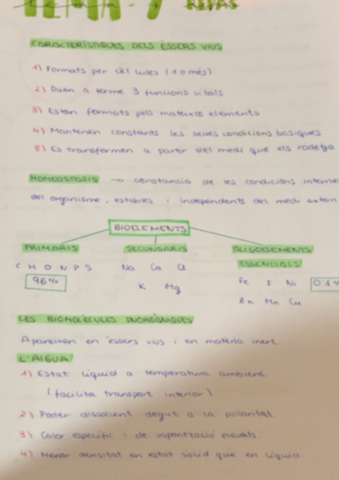 TEMA - 7 REPÀS
CARACTERÍSTIQUES DELS ÉSSERS VIUS
1) Formats per cèl·lules (1 o més)
2) Duen a terme 3 funcions vitals
3) Estan formats pels mateixos elements
4) Mantenen constants les seues condicions bàsiques
5) Es transformen a partir del medi que els rodeja
HOMEOSTASIS → constancia de les condicions internes
del organisme, estables i independents del medi extern
BIOELEMENTS
PRIMARIS SECUNDARIS OLIGOELEMENTS
ESSENCIALS
C H O N P S Na Ca Cl
96% K Mg Fe I Ni 0.1%
Zn Mn Cu
LES BIOMOLÈCULES INORGÀNIQUES
Apareixen en éssers vius i en matèria inert.
L'AIGUA
1) Estat líquid a temperatura ambient
(facilita transport interior)
2) Poder dissolvent degut a la polaritat.
3) Calor específic i de vaporització elevats.
4) Menor densitat en estat sòlid que en líquid